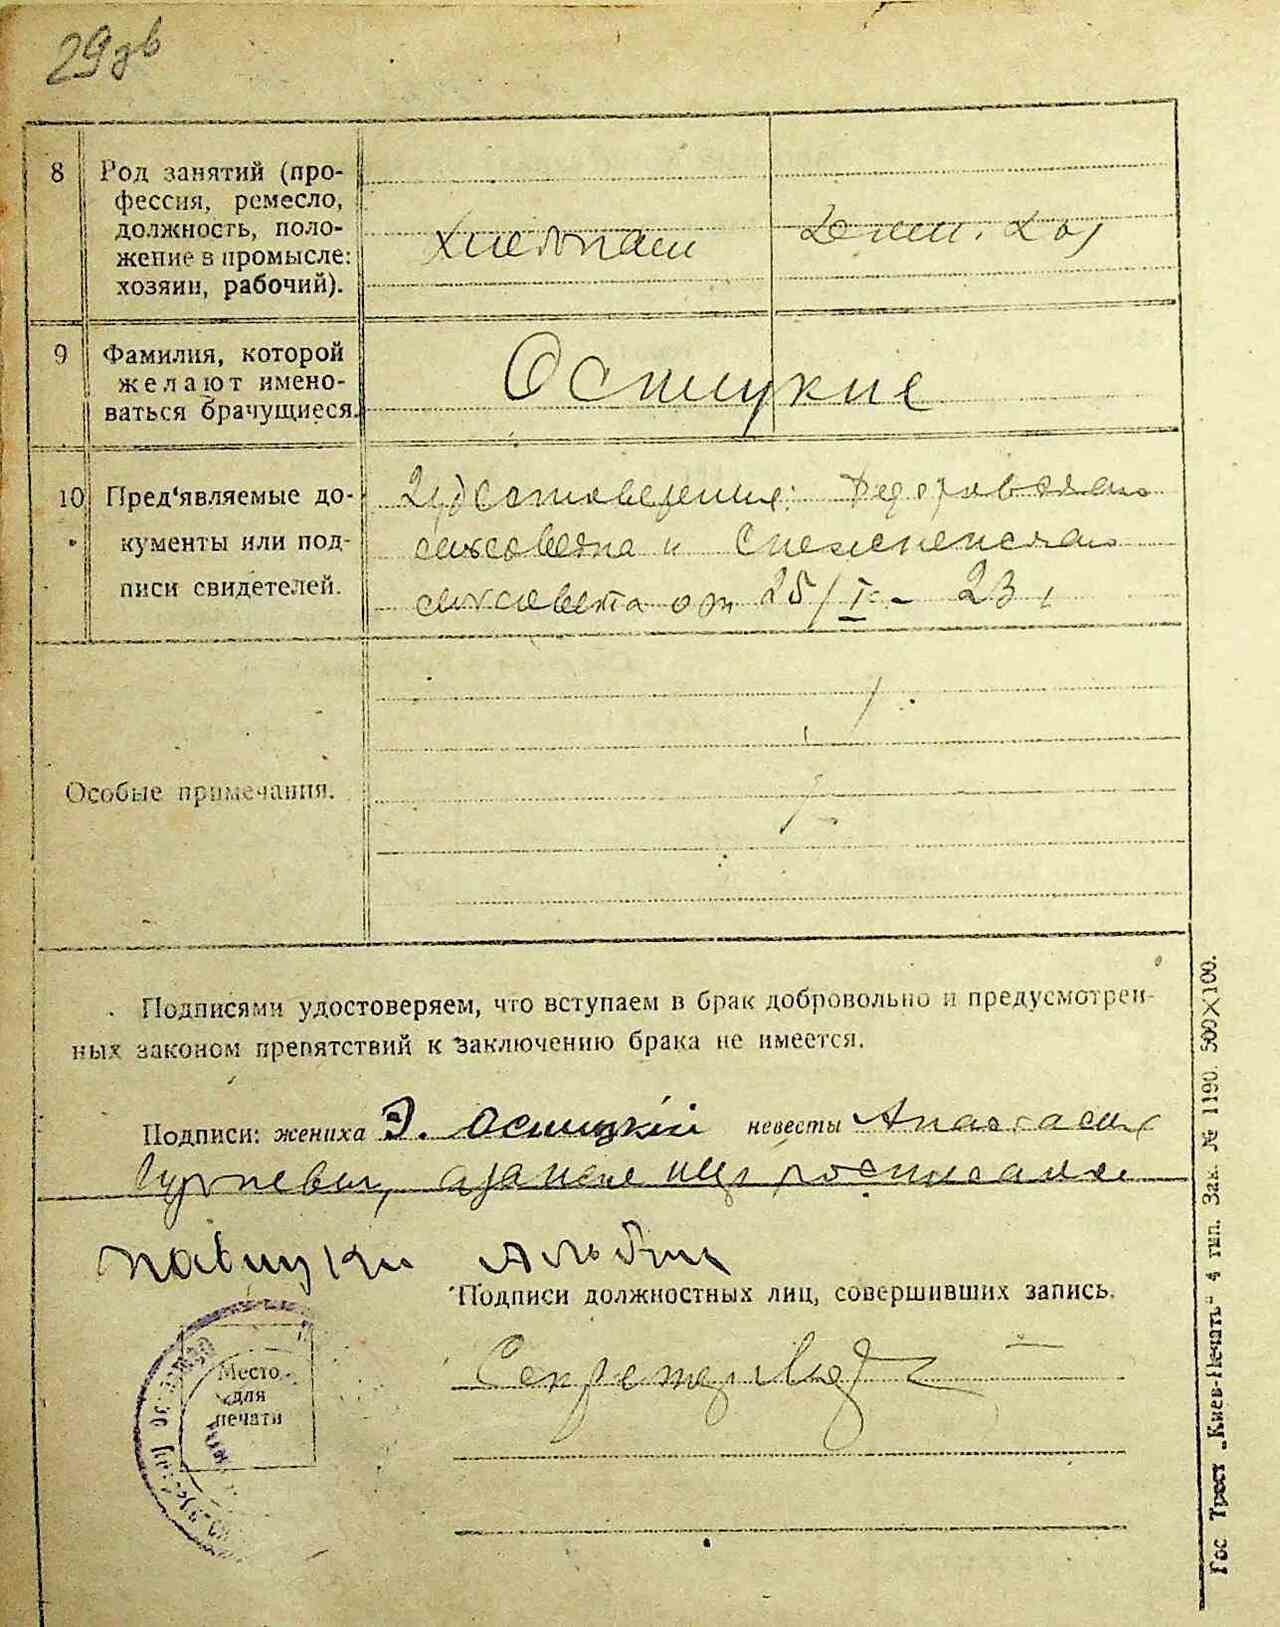 29 зв
8 Род занятий (про-
фессия, ремесло,
должность, поло-
жение в промысле:
хозяин, рабочий).
хлебопаш Дом. хоз
9 Фамилия, которой
желают имено-
ваться брачущиеся.
Осницкие
10 Пред'являемые до-
кументы или под-
писи свидетелей.
Удостоверения:
сельсовета и
сельсовета от 25/I - 23
Особые примечания.
Подписями удостоверяем, что вступаем в брак добровольно и предусмотрен-
ных законом препятствий к заключению брака не имеется.
Подписи: жениха Э. Осницкій невесты Анастасия
а за нее неgр росписался
Подписи должностных лиц, совершивших запись.
Место
для
печати
Секретарь
Гос Трест „Киев-Печать" 4 тип. Зак. № 1190. 500X100.